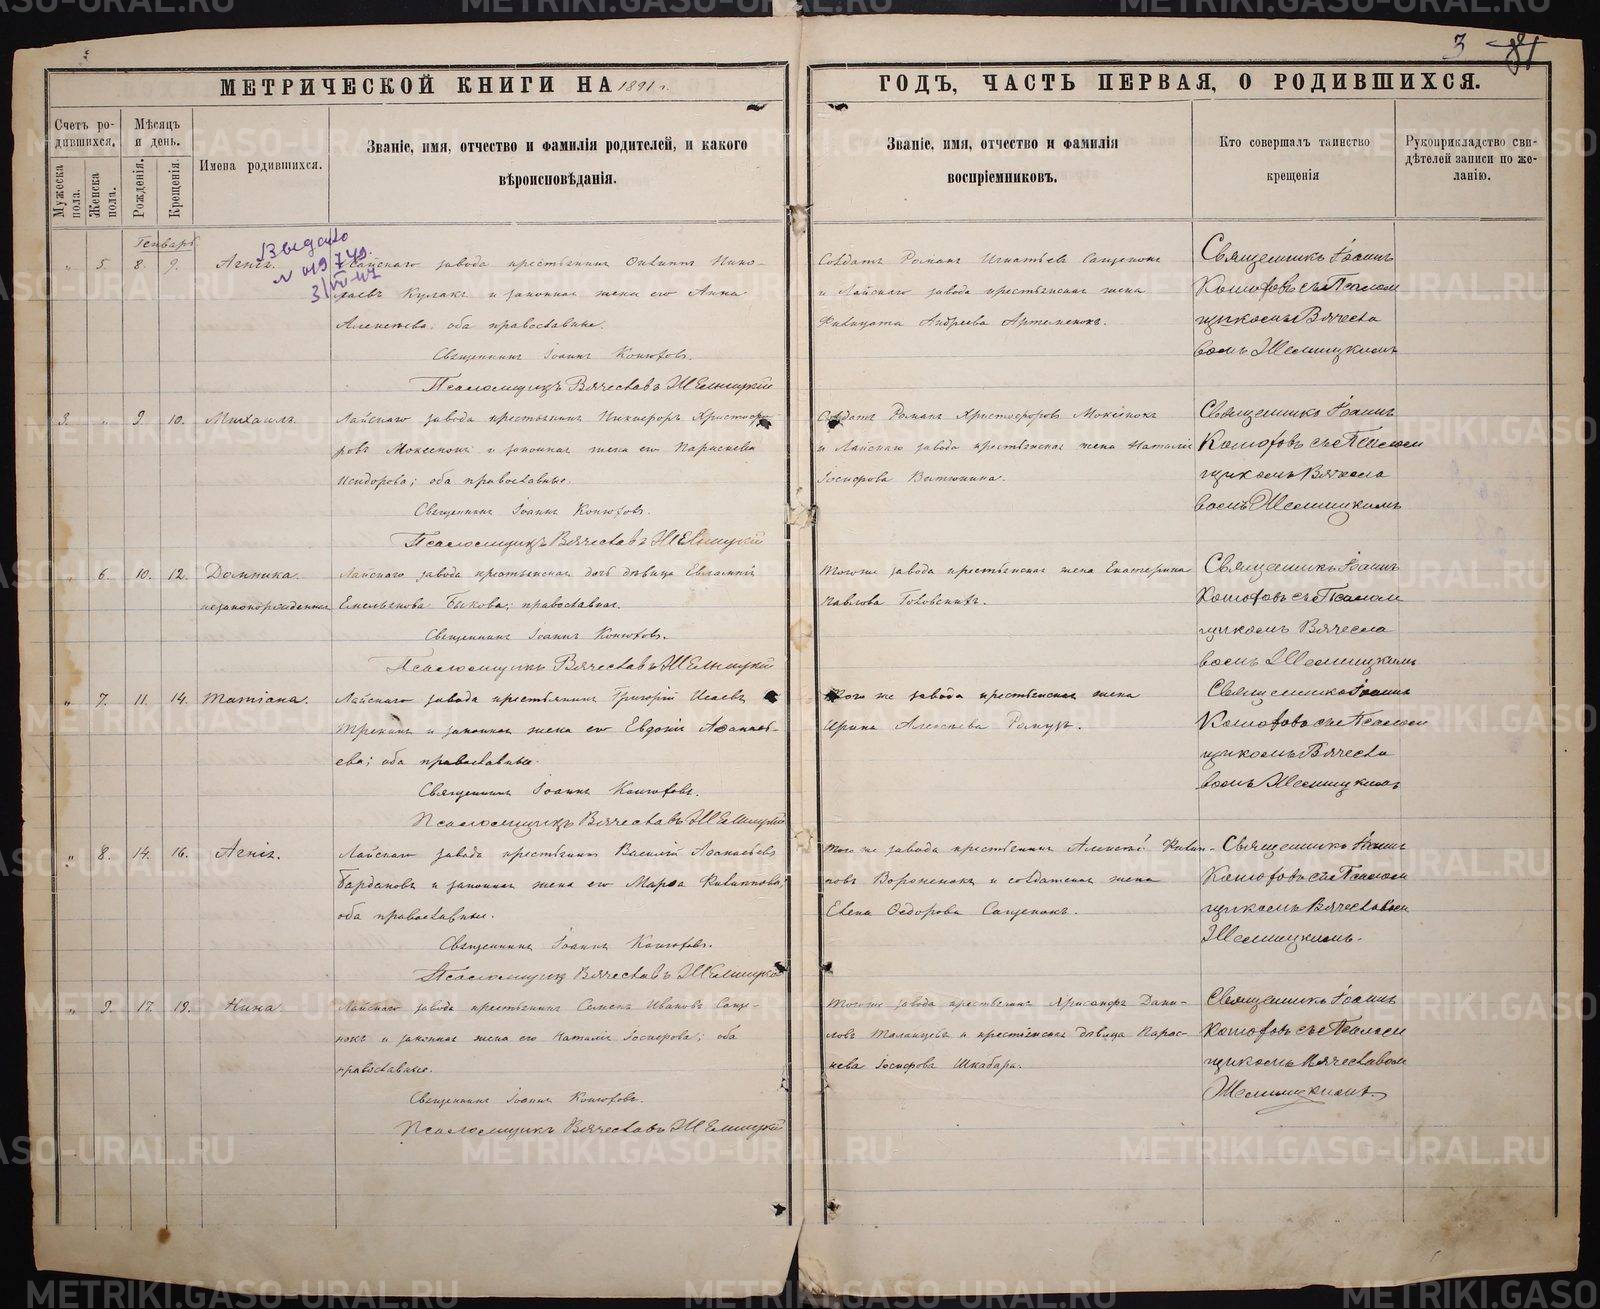 3 81
МЕТРИЧЕСКОЙ КНИГИ НА 1891 г.
ГОДЪ, ЧАСТЬ ПЕРВАЯ, О РОДИВШИХСЯ.
Счетъ ро-
дившихся.
Мужеска пола.
Женска пола.
Мѣсяцъ
и день.
Рожденія.
Крещенія.
Имена родившихся.
Званіе, имя, отчество и фамилія родителей, и какого
вѣроисповѣданія.
Званіе, имя, отчество и фамилія
воспріемниковъ.
Кто совершалъ таинство
крещенія
Рукоприкладство сви-
дѣтелей записи по же-
ланію.
Генварь
Выдано
" 5. 8. 9. Агнія. Лайскаго завода крестьянинъ Филиппъ Нико-
лаевъ Кулакъ и законная жена его Анна
Алексѣева; оба православные.
Священникъ Іоаннъ Конюховъ.
Псаломщикъ Вячеславъ
Солдатъ Романъ Игнатьевъ Сащенокъ
и Лайскаго завода крестьянская жена
Андреева Артеменокъ.
Священникъ Іоаннъ
Конюховъ съ Псалом
щикомъ Вячесла
вомъ
3. " 9. 10. Михаилъ. Лайскаго завода крестьянинъ Никифоръ Христофо-
ровъ Мокеенокъ и законная жена его Параскева
Исидорова; оба православные.
Священникъ Іоаннъ Конюховъ.
Псаломщикъ Вячеславъ
Солдатъ Романъ Христофоровъ Мокеенокъ
и Лайскаго завода крестьянская жена Наталія
Іосифова Витюнина.
Священникъ Іоаннъ
Конюховъ съ Псалом
щикомъ Вячесла
вомъ
" 6. 10. 12. Домника незаконорожденная
Лайскаго завода крестьянская дочь дѣвица Евгампія
Емельянова Быкова; православная.
Священникъ Іоаннъ Конюховъ.
Псаломщикъ Вячеславъ
Того же завода крестьянская жена Екатерина
Павлова
Священникъ Іоаннъ
Конюховъ съ Псалом
щикомъ Вячесла
вомъ
" 7. 11. 14. Татіана. Лайскаго завода крестьянинъ Григорій Исаевъ
и законная жена его Евдокія Аѳанась-
ева; оба православные.
Священникъ Іоаннъ Конюховъ.
Псаломщикъ Вячеславъ
Того же завода крестьянская жена
Ирина Алексѣева
Священникъ Іоаннъ
Конюховъ съ Псалом
щикомъ Вячесла
вомъ
" 8. 14. 16. Агнія. Лайскаго завода крестьянинъ Василій Аѳанасьевъ
Бардановъ и законная жена его Марѳа Филиппова;
оба православные.
Священникъ Іоаннъ Конюховъ.
Псаломщикъ Вячеславъ
Того же завода крестьянинъ Алексѣй Филип-
повъ Вороненокъ и солдатская жена
Елена Ѳедорова Сащенокъ.
Священникъ Іоаннъ
Конюховъ съ Псалом
щикомъ Вячеславом
" 9. 17. 18. Нина. Лайскаго завода крестьянинъ Семенъ Ивановъ Саще-
нокъ и законная жена его Наталія Іосифова; оба
православные.
Священникъ Іоаннъ Конюховъ.
Псаломщикъ Вячеславъ
Того же завода крестьянинъ Хрисанфъ Дани-
ловъ Таланцевъ и крестьянская дѣвица Парас-
кева Іосифова Шкабара.
Священникъ Іоаннъ
Конюховъ съ Псалом
щикомъ Вячеславом
METRIKI.GASO-URAL.RU